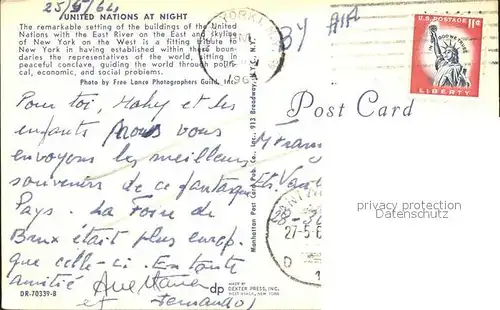 25/5/64
UNITED NATIONS AT NIGHT
The remarkable setting of the buildings of the United
Nations with the East River on the East and skyline
of New York on the West is a fitting tribute to
New York in having established within its
boundaries the representatives of the world, sitting in
peaceful conclave, guiding the world through political, economic, and social problems.
Photo by Free Lance Photographers Guild, Inc.
BY AIR
U.S. POSTAGE 11¢
IN GOD WE TRUST
LIBERTY
Post Card
Pour toi, et les
enfants nous vous
envoyons les meilleurs
souvenirs de ce fantasque
Pays. La Foire de
Brux était plus europ.
que celle-ci. En toute
amitié
et Fernando
28-32
27-5-6
D
1
Manhattan Post Card Pub. Co., Inc., 913 Broadway, N.Y.C., N.Y.
privacy protection
Datenschutz
dp
MADE BY
DEXTER PRESS, INC.
WEST NYACK, NEW YORK
DR-70339-B